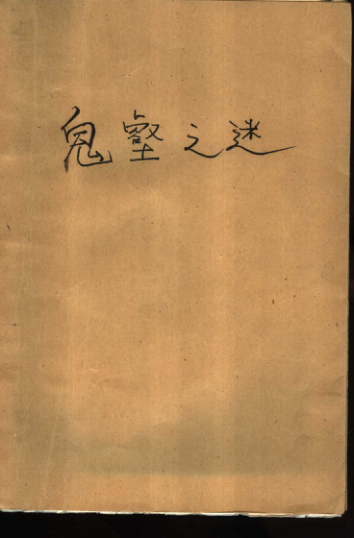 鬼壑之迷